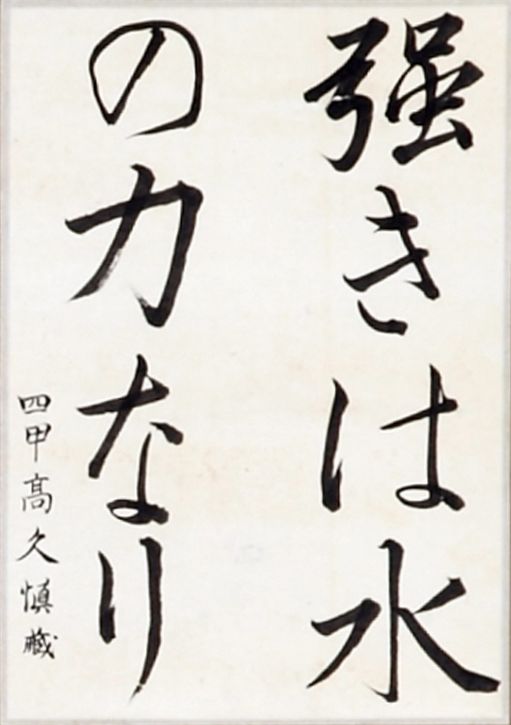 強きは水
の力なり
四甲髙久慎藏